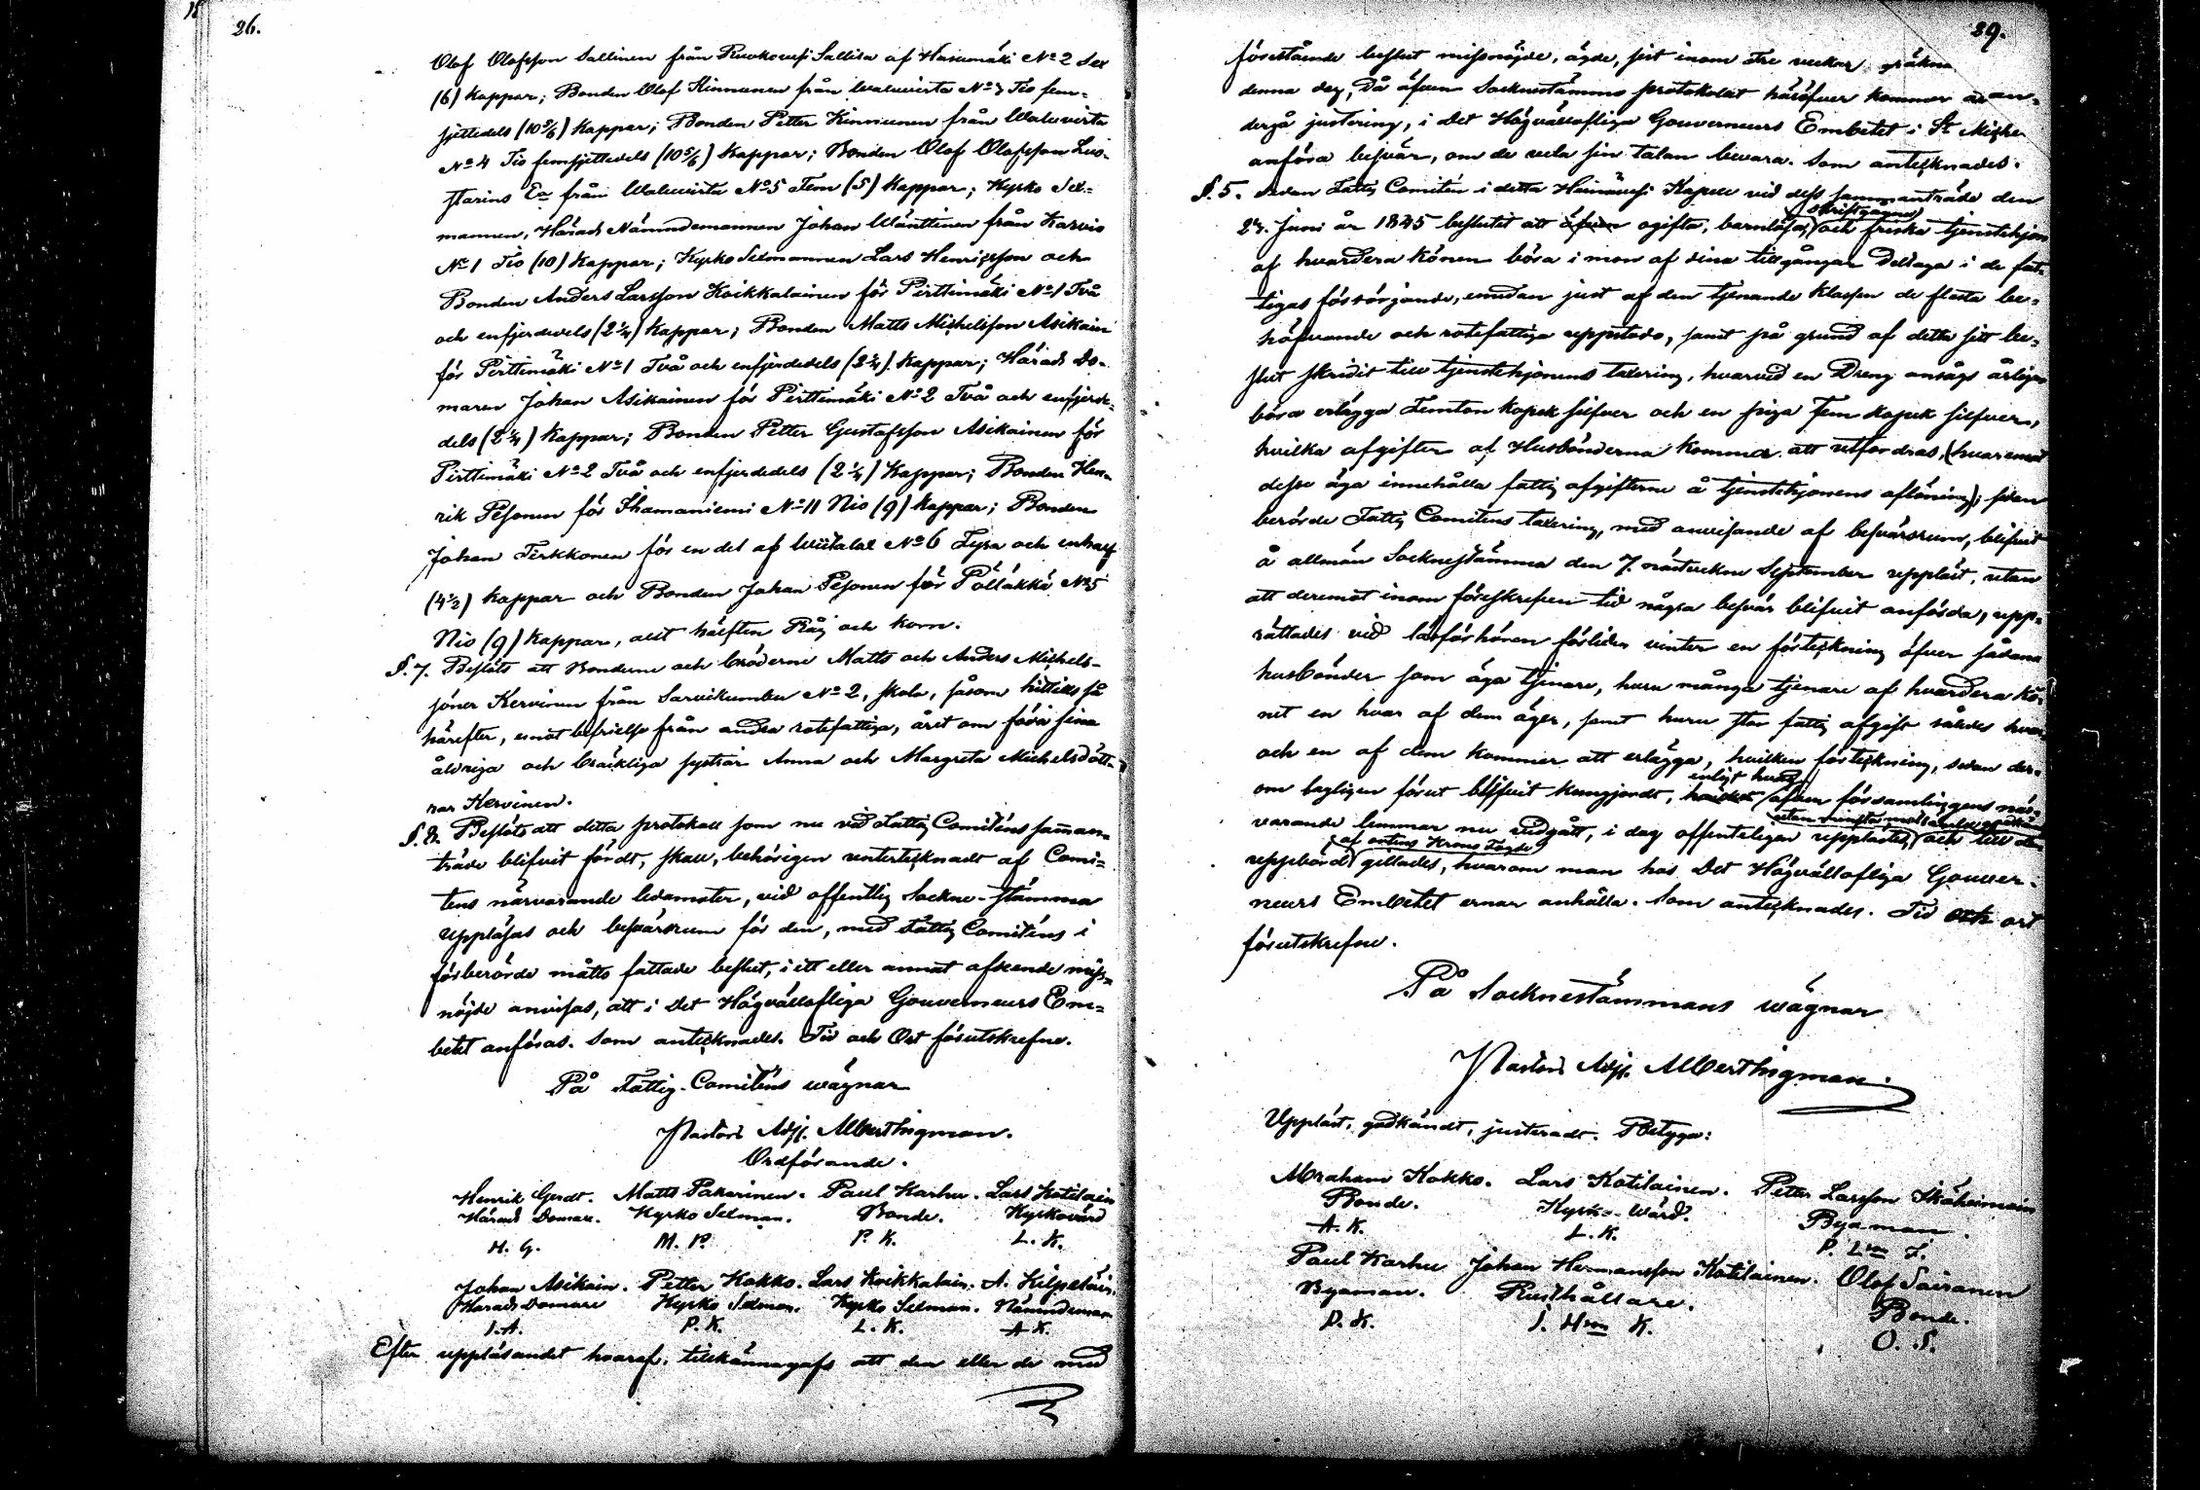 26.
Olof Olofsson Sallinen från Ruokovesi Sallila af Hasumäki No 2 Sex
(6) Kappar; Bonden Olof Kinnunen från Waluvirta No 3 Tio fem-
sjettedels (10 5/6) Kappar; Bonden Petter Kinnunen från Waluvirta
No 4 Tio femsjettedels (10 5/6) Kappar; Bonden Olof Olofsson Lus-
starins Ea från Waluvirta No 5 Fem (5) Kappar; Kyrko Sex-
mannen, Härads Nämndemannen Johan Wänttinen från Karvio
No 1 Tio (10) Kappar; Kyrko Sexmannen Lars Henricsson och
Bonden Anders Larsson Koikkalainen för Pirttimäki No 1 Två
och enfjerdedels (2 1/4) Kappar; Bonden Matts Michelsson Asikain
för Pirttimäki No 1 Två och enfjerdedels (2 1/4) Kappar; Härads Do-
maren Johan Asikainen för Pirttimäki No 2 Två och enfjerde-
dels (2 1/4) Kappar; Bonden Petter Gustafsson Asikainen för
Pirttimäki No 2 Två och enfjerdedels (2 1/4) Kappar; Bonden Hen-
rik Pesonen för Ihamaniemi No 11 Nio (9) Kappar; Bonden
Johan Tirkkonen för en del af Wiitalax No 6 Fyra och enhalf
(4 1/2) Kappar och Bonden Johan Pesonen för Pölläkkä No 5
Nio (9) Kappar, allt hälften Råg och Korn.
§. 7. Beslöts att Bönderne och bröderne Matts och Anders Michels-
söner Kervinen från Sarvikumbu No 2, skola, såsom hittills så
härefter, emot befrielse från andra rotefattiga, året om föda sina
åldriga och bräckliga systrar Anna och Margreta Michelsdött-
rar Kervinen.
§. 8. Beslöts att detta protokoll som nu vid Fattig Comiténs samman-
träde blifvit fördt, skall, behörigen undertecknadt af Comi-
tens närvarande ledamöter, vid offentlig Sockne-stämma
uppläsas och besvärsrum för den, med Fattig Comiténs i
förberörde måtto fattade beslut, i ett eller annat afseende miss-
nöjde anvisas, att i Det Högvällofliga Gouverneurs Em-
betet anföras. Som antecknades. Tid och Ort förutskrefne.
På Fattig-Comiténs wägnar
Pastors Adj. Albert Ingman.
Ordförande.
Henrik Gerdt. Matts Pakarinen. Paul Karhu. Lars Kotilain
Härads Domare. Kyrko Sexman. Bonde. Kyrkovärd
H. G. M. P. P. K. L. K.
Johan Asikain. Petter Kokko. Lars Koikkalain. A. Kilpeläin.
Härads Domare Kyrko Sexman. Kyrko Sexman. Nämndeman
J. A. P. K. L. K. A. K.
Efter uppläsandet hvaraf, tillkännagafs att den eller de med
29.
förestående beslut missnöjde, ägde, sist inom tre veckor räkna
denna dag, då äfven Sockenstämms protokollet häröfver kommer att un-
dergå justering, i Det Högvällofliga Gouverneurs Embetet i St Michel
anföra besvär, om de vela sin talan bevara. Som antecknades.
§. 5. Sedan Fattig Comitén i detta Heinävesi Kapell vid dess sammanträde den
skriftgagne
27. Juni år 1845 beslutit att äfven ogifta, barnlösa, och friska tjenstehjon
af hvardera könen böra i mon af sina tillgångar deltaga i de fat-
tigas försörjande, emedan just af den tjenande klassen de flesta be-
höfvande och rotefattiga uppstodo, samt på grund af detta sitt be-
slut skridit till tjenstehjonens taxering, hvarvid en Dreng ansågs årligen
böra erlägga Femton kopek silfver och en piga Fem kopek silfver,
hvilka afgifter af Husbönderna komma att utfordras, (hvaremot
desse äga innehålla fattig afgifterne å tjenstehjonens aflöning); sedan
berörde Fattig Comiténs taxering, med anvisande af besvärsrum, blifvit
å allmän Socknestämma den 7. nästvekne September uppläst, utan
att deremot inom föreskrefven tid några besvär blifvit anförda, upp-
rättades vid läsförhören förliden vinter en förteckning öfver sådana
husbönder som äga tjenare, huru många tjenare af hvardera kö-
net en hvar af dem äger, samt huru stor fattig afgift således hvar
och en af dem kommer att erlägga, hvilken förteckning, sedan der-
enligt hvad
om lagligen förut blifvit kungjordt, äfven församlingens när-
varande lemmar nu vidgått, i dag offentligen upplästes, och till
af ortens Krono Fogde
uppbörd gillades, hvarom man hos Det Högvällofliga Gouver-
neurs Embetet ernar anhålla. Som antecknades. Tid och ort
förutskrefne.
På Socknestämmans wägnar
Pastors Adj. Albert Ingman.
Uppläst, godkändt, justeradt. Betyga:
Abraham Kokko. Lars Kotilainen. Petter Larsson Ikäheimoin
Bonde. Kyrko-Wärd. Byaman.
A. K. L. K. P. Lson I.
Paul Karhu Johan Hermansson Kotilainen. Olof Sairanen
Byaman. Rusthållare. Bonde.
P. K. J. Hson K. O. S.